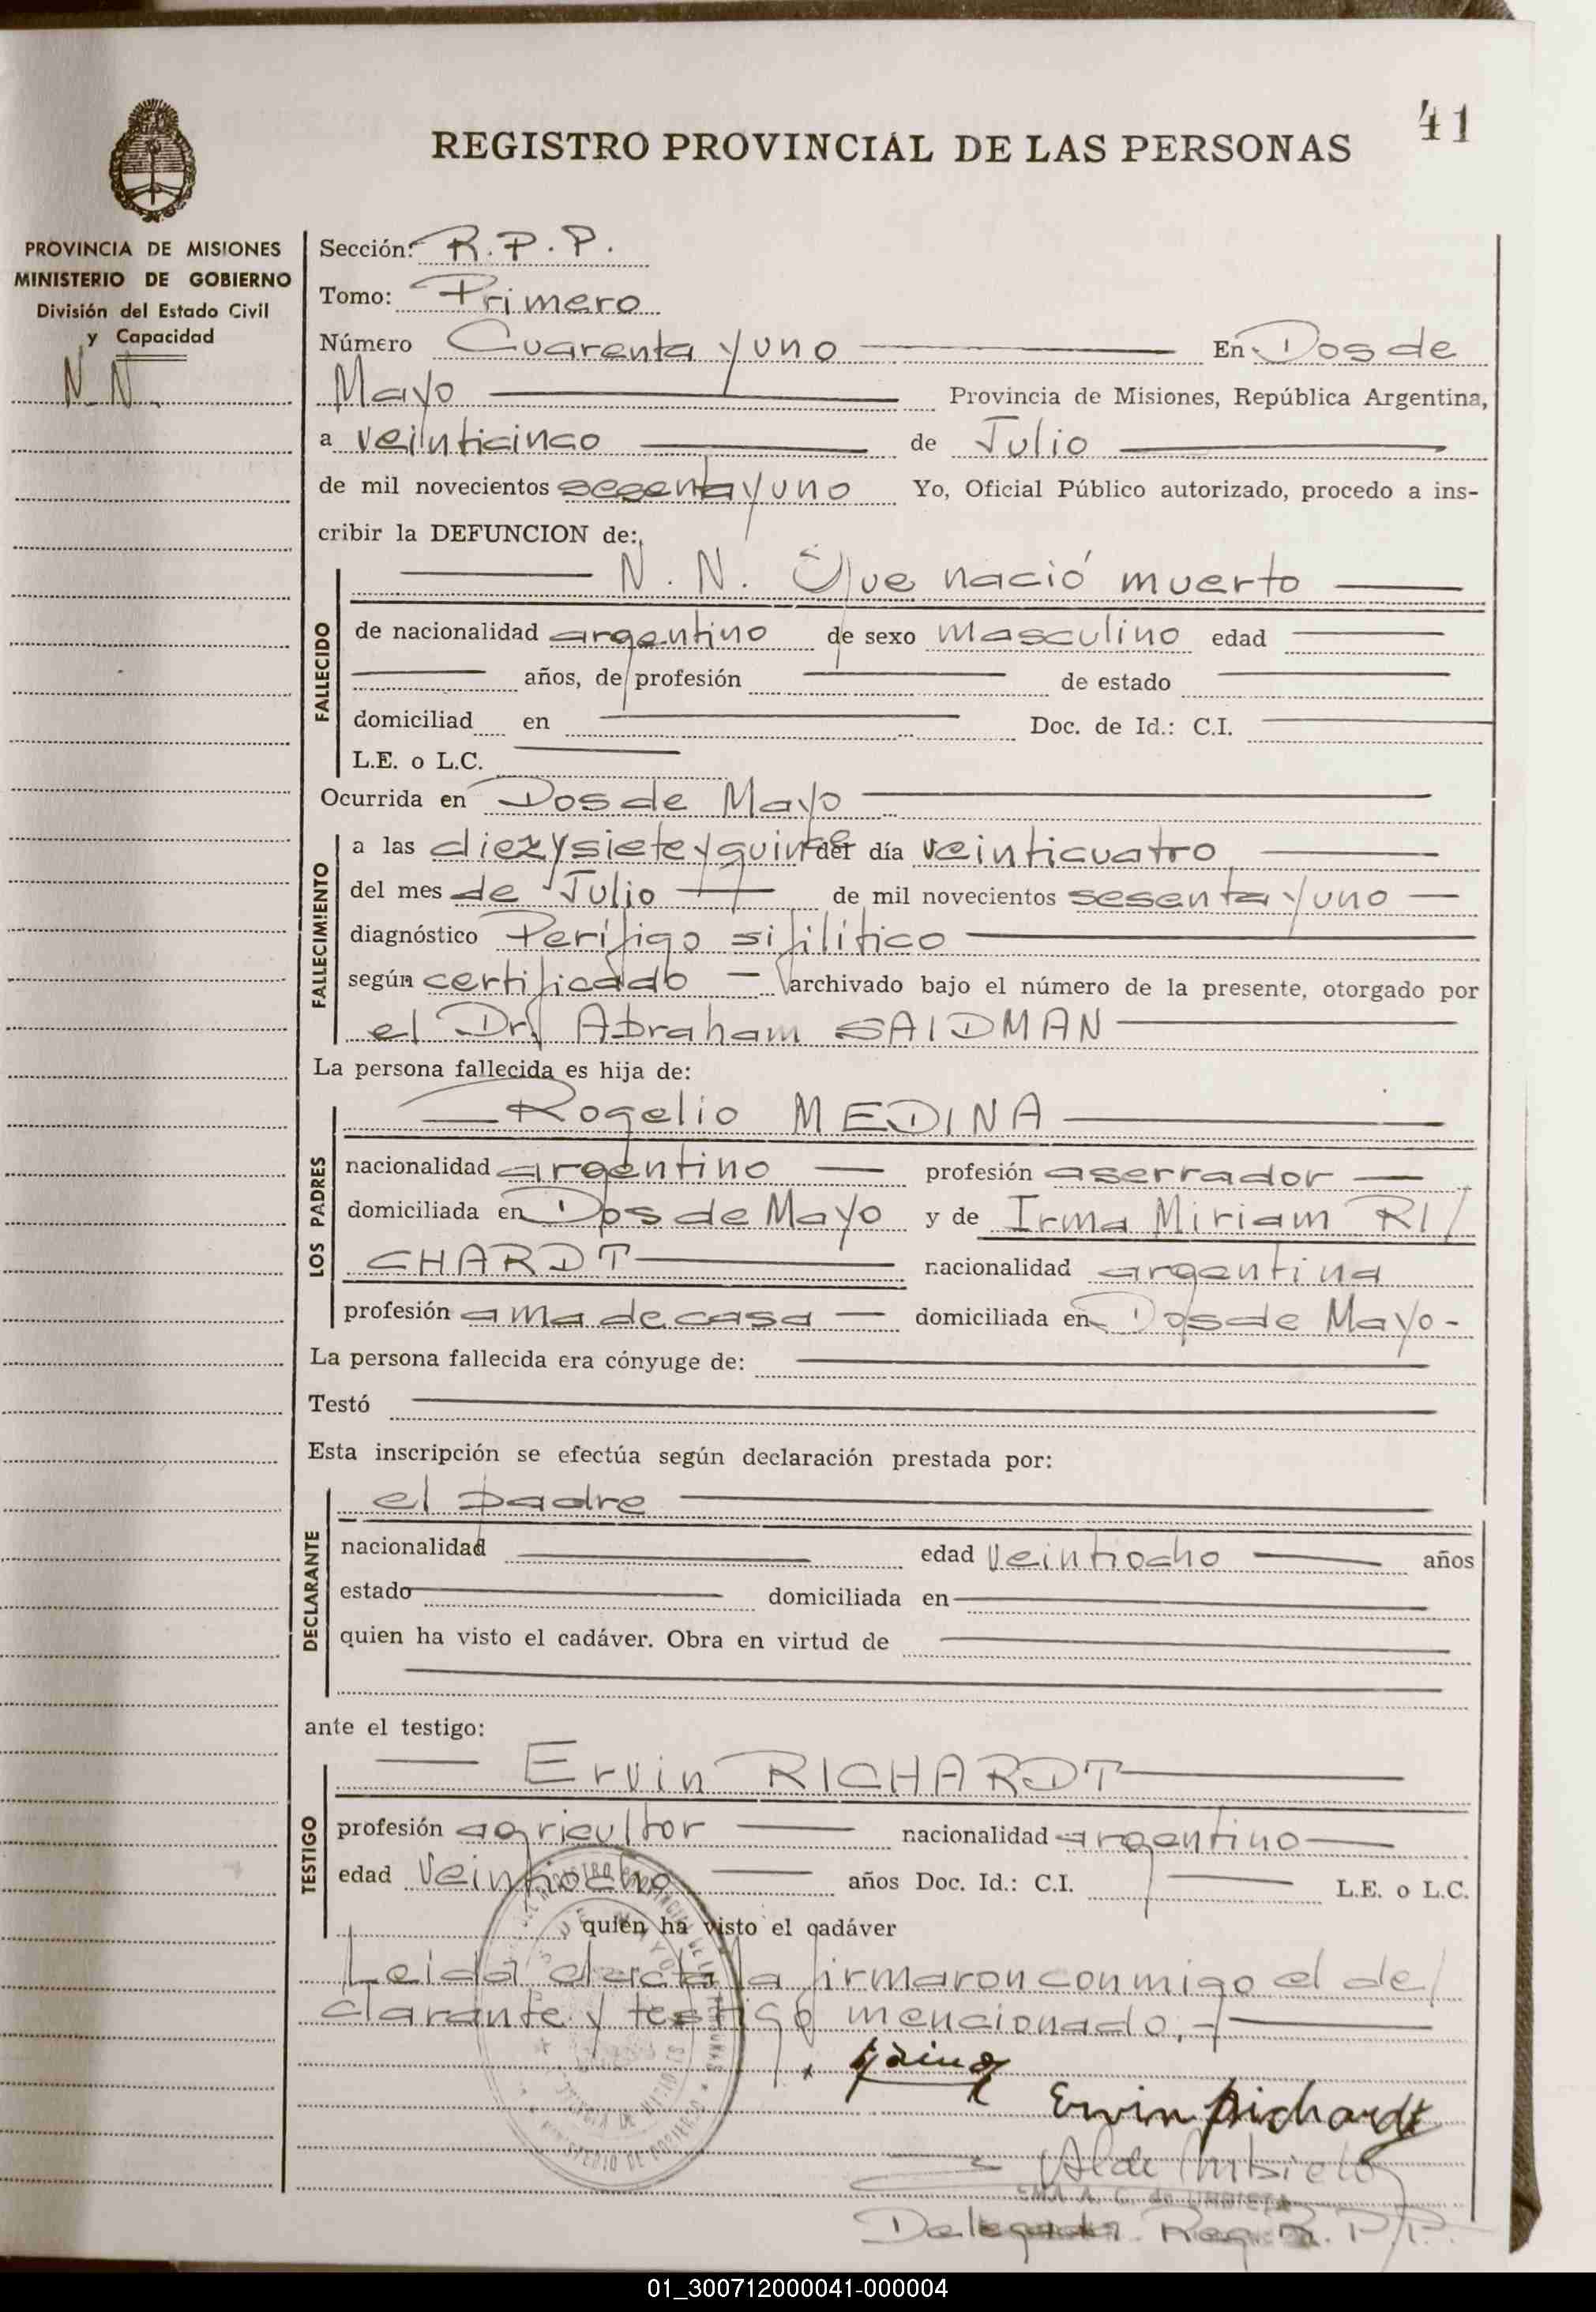 41
REGISTRO PROVINCIAL DE LAS PERSONAS
PROVINCIA DE MISIONES
MINISTERIO DE GOBIERNO
División del Estado Civil
y Capacidad
N. N.
Sección: R. P. P.
Tomo: Primero
Número Cuarenta y uno En Dos de
Mayo Provincia de Misiones, República Argentina,
a veinticinco de Julio
de mil novecientos sesenta y uno Yo, Oficial Público autorizado, procedo a ins-
cribir la DEFUNCION de:
N. N. Que nació muerto
FALLECIDO
de nacionalidad argentino de sexo masculino edad
años, de profesión de estado
domiciliad en Doc. de Id.: C.I.
L.E. o L.C.
Ocurrida en Dos de Mayo
FALLECIMIENTO
a las diez y siete y quince del día veinticuatro
del mes de Julio de mil novecientos sesenta y uno
diagnóstico Perífigo sifilítico
según certificado archivado bajo el número de la presente, otorgado por
el Dr. Abraham SAIDMAN
La persona fallecida es hija de:
LOS PADRES
Rogelio MEDINA
nacionalidad argentino profesión aserrador
domiciliada en Dos de Mayo y de Irma Miriam RI/
CHARDT nacionalidad argentina
profesión ama de casa domiciliada en Dos de Mayo-
La persona fallecida era cónyuge de:
Testó
Esta inscripción se efectúa según declaración prestada por:
DECLARANTE
el padre
nacionalidad edad veintiocho años
estado domiciliada en
quien ha visto el cadáver. Obra en virtud de
ante el testigo:
TESTIGO
Ervin RICHARDT
profesión agricultor nacionalidad argentino
edad Veintiocho años Doc. Id.: C.I. L.E. o L.C.
quien ha visto el cadáver
Leida el acta la firmaron conmigo el de/
clarante y testigo mencionado.-
Ervin Richardt
MINISTERIO DE GOBIERNO
Delegada Reg. R. P. P.
01_300712000041-000004